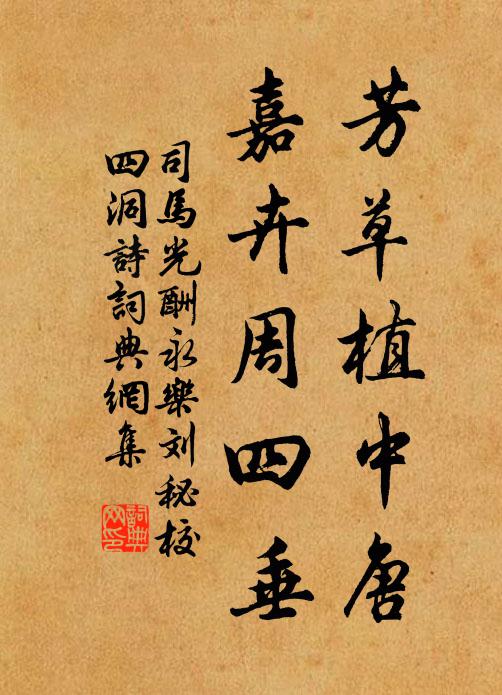 芳草植中唐
嘉卉周四垂
司馬光酬永樂刘秘校
四洞詩詞典網集
詞典网印